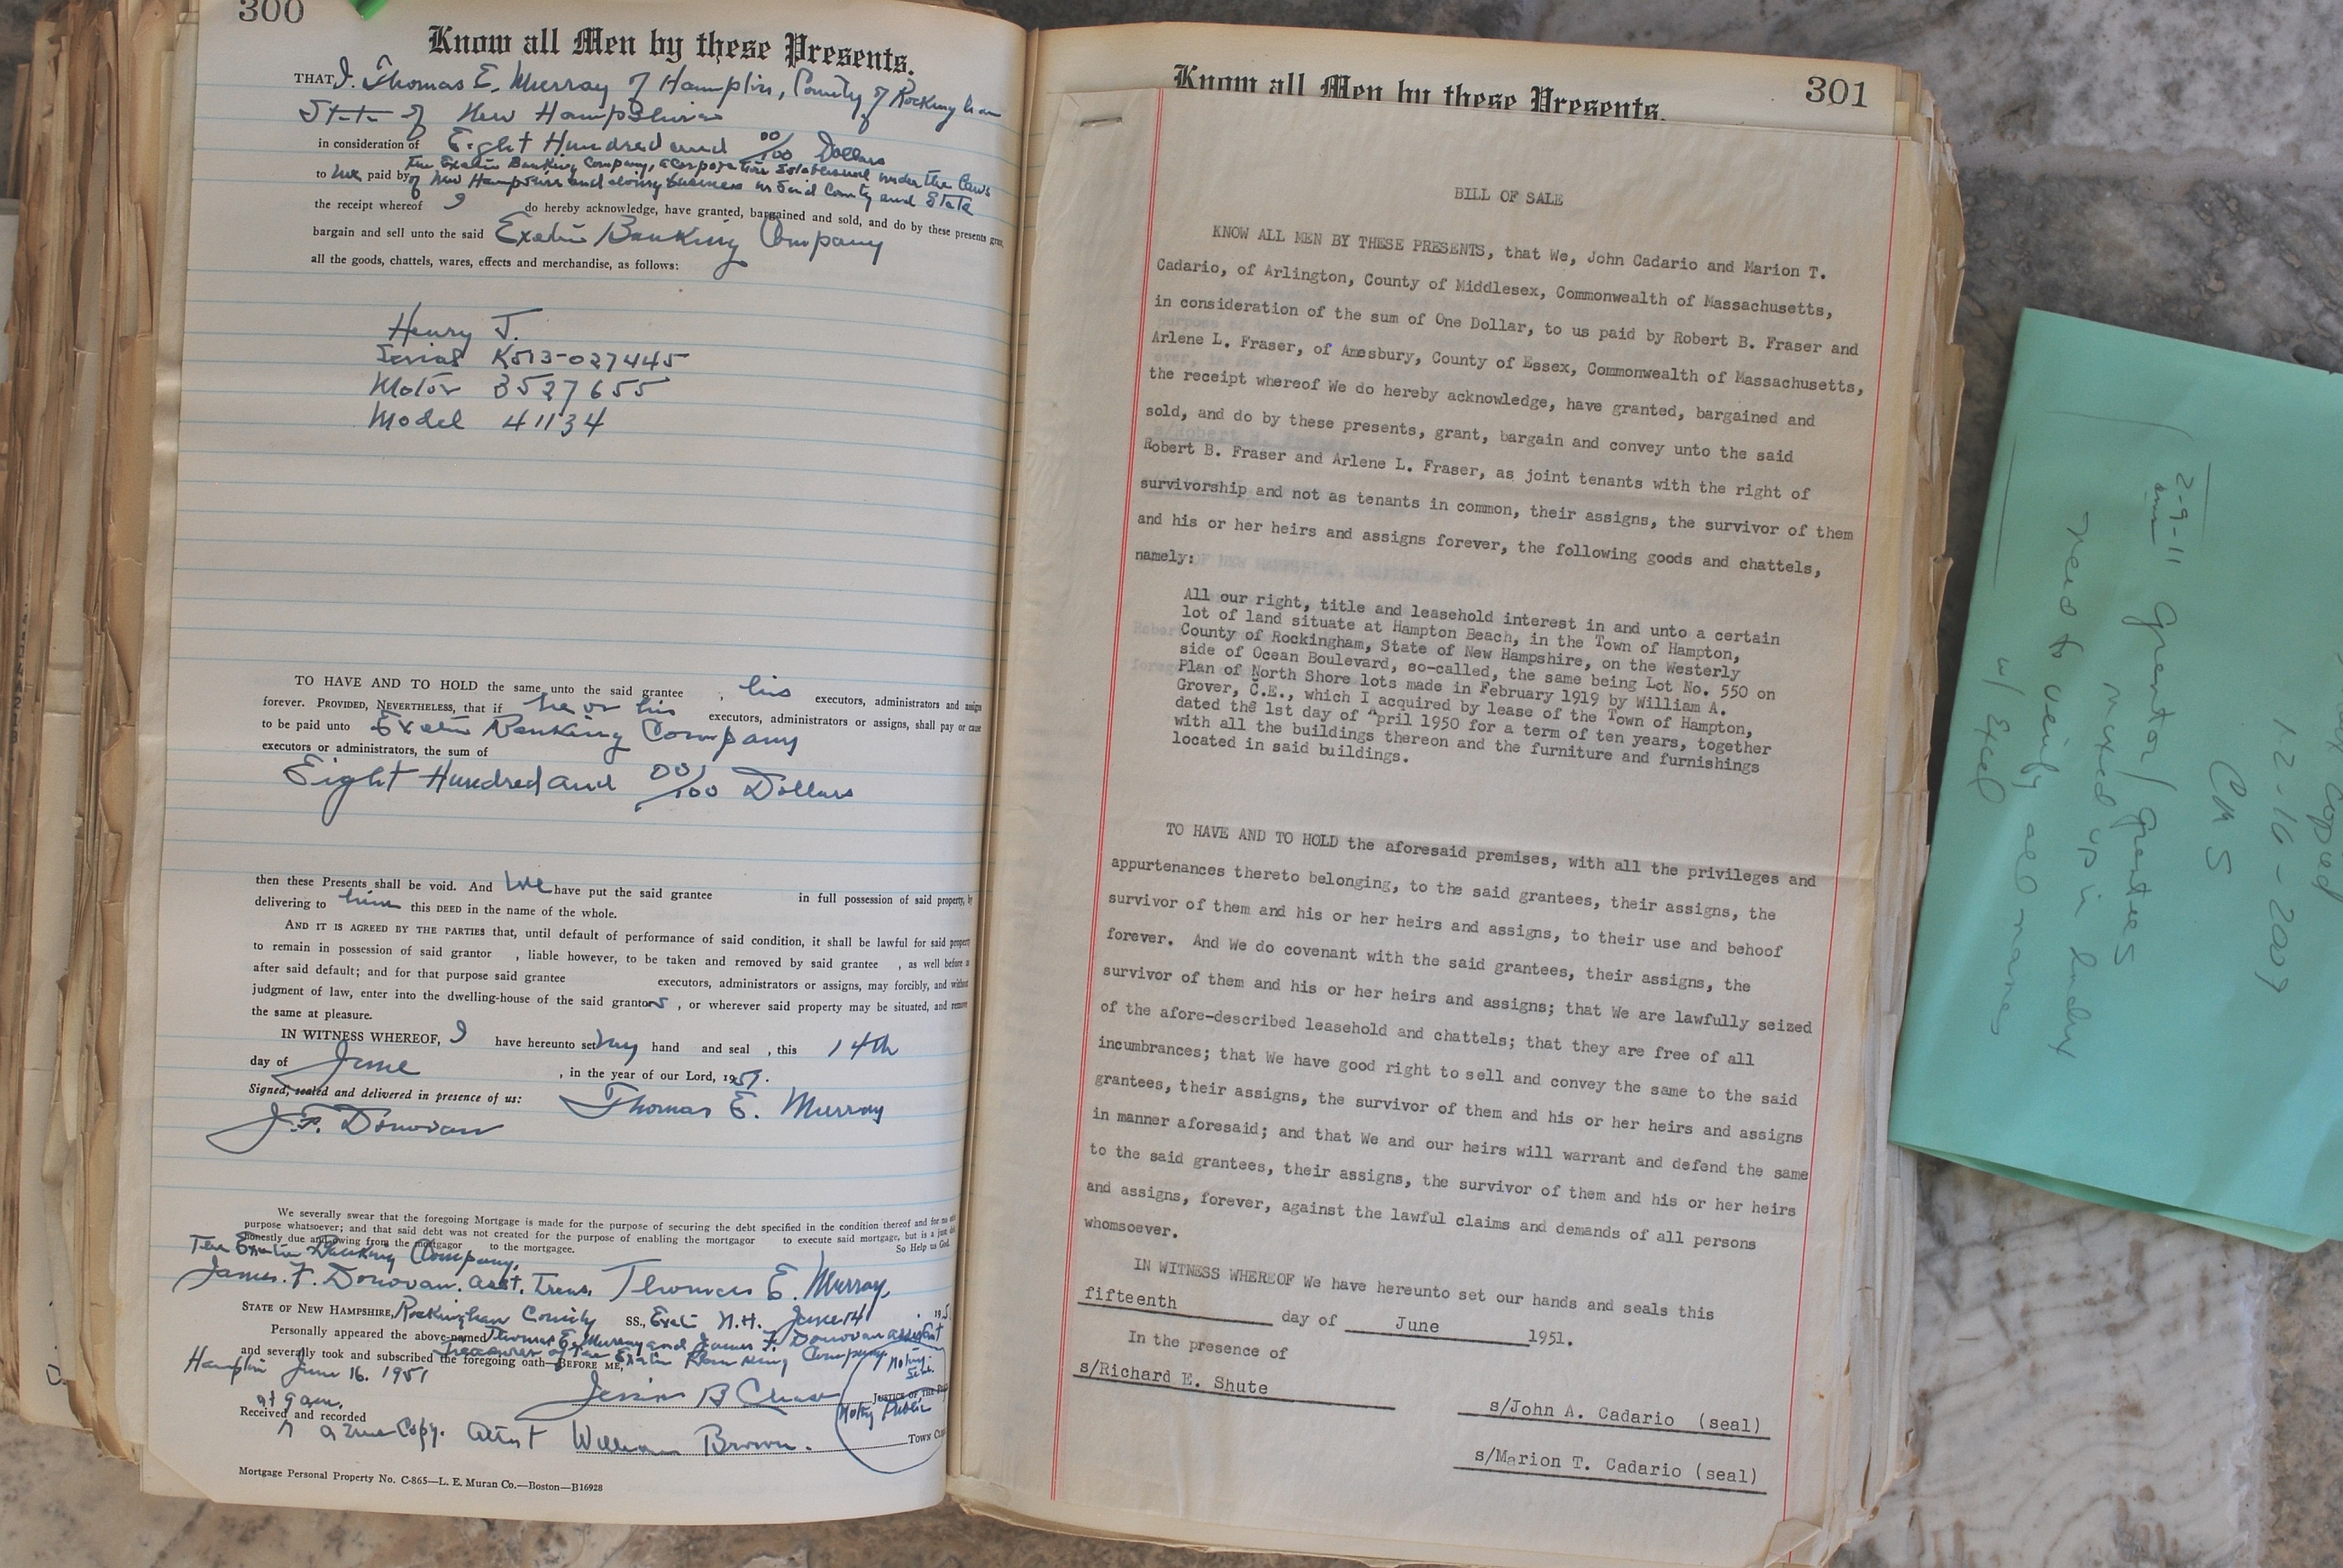 300
Know all Men by these Presents.
THAT I. Thomas E. Murray of Hampton, County of Rockingham
State of New Hampshire
in consideration of Eight Hundred and 00/100 Dollars
The Exeter Banking Company, a corporation established under the laws
to me paid by of New Hampshire and doing business in Said County and State
the receipt whereof I do hereby acknowledge, have granted, bargained and sold, and do by these presents
bargain and sell unto the said Exeter Banking Company
all the goods, chattels, wares, effects and merchandise, as follows:
Henry J.
Serial K513-027445
Motor 3527655
Model 41134
TO HAVE AND TO HOLD the same unto the said grantee , his executors, administrators and assigns
forever. PROVIDED, NEVERTHELESS, that if he or his executors, administrators or assigns, shall pay or cause
to be paid unto Exeter Banking Company
executors or administrators, the sum of
Eight Hundred and 00/100 Dollars
then these Presents shall be void. And we have put the said grantee in full possession of said property,
delivering to him this DEED in the name of the whole.
AND IT IS AGREED BY THE PARTIES that, until default of performance of said condition, it shall be lawful for said property
to remain in possession of said grantor , liable however, to be taken and removed by said grantee , as well before
after said default; and for that purpose said grantee executors, administrators or assigns, may forcibly, and without
judgment of law, enter into the dwelling-house of the said grantors , or wherever said property may be situated, and remove
the same at pleasure.
IN WITNESS WHEREOF, I have hereunto set my hand and seal , this 14th
day of June , in the year of our Lord, 1951.
Signed, sealed and delivered in presence of us: Thomas E. Murray
J.F. Donovan
We severally swear that the foregoing Mortgage is made for the purpose of securing the debt specified in the condition thereof and for no
purpose whatsoever; and that said debt was not created for the purpose of enabling the mortgagor to execute said mortgage, but is a just
honestly due and owing from the mortgagor to the mortgagee. So Help us God.
The Exeter Banking Company,
James. F. Donovan. asst. Treas. Thomas E. Murray,
STATE OF NEW HAMPSHIRE, Rockingham County SS., Exeter N.H. June 14 , 195
Personally appeared the above-named Thomas E. Murray and James F. Donovan assistant
treasurer of The Exeter Banking Company
and severally took and subscribed the foregoing oath—BEFORE ME,
Hampton June 16. 1951
at 9 am.
B Chase JUSTICE OF THE
Notary Seal.
Notary Public
Received and recorded
A true Copy. Attest William Brown. TOWN
Mortgage Personal Property No. C-865—L. E. Muran Co.—Boston—B16928
301
Know all Men by these Presents.
BILL OF SALE
KNOW ALL MEN BY THESE PRESENTS, that We, John Cadario and Marion T.
Cadario, of Arlington, County of Middlesex, Commonwealth of Massachusetts,
in consideration of the sum of One Dollar, to us paid by Robert B. Fraser and
Arlene L. Fraser, of Amesbury, County of Essex, Commonwealth of Massachusetts,
the receipt whereof We do hereby acknowledge, have granted, bargained and
sold, and do by these presents, grant, bargain and convey unto the said
Robert B. Fraser and Arlene L. Fraser, as joint tenants with the right of
survivorship and not as tenants in common, their assigns, the survivor of them
and his or her heirs and assigns forever, the following goods and chattels,
namely:
All our right, title and leasehold interest in and unto a certain
lot of land situate at Hampton Beach, in the Town of Hampton,
County of Rockingham, State of New Hampshire, on the Westerly
side of Ocean Boulevard, so-called, the same being Lot No. 550 on
Plan of North Shore lots made in February 1919 by William A.
Grover, C.E., which I acquired by lease of the Town of Hampton,
dated the 1st day of April 1950 for a term of ten years, together
with all the buildings thereon and the furniture and furnishings
located in said buildings.
TO HAVE AND TO HOLD the aforesaid premises, with all the privileges and
appurtenances thereto belonging, to the said grantees, their assigns, the
survivor of them and his or her heirs and assigns, to their use and behoof
forever. And We do covenant with the said grantees, their assigns, the
survivor of them and his or her heirs and assigns; that We are lawfully seized
of the afore-described leasehold and chattels; that they are free of all
incumbrances; that We have good right to sell and convey the same to the said
grantees, their assigns, the survivor of them and his or her heirs and assigns
in manner aforesaid; and that We and our heirs will warrant and defend the same
to the said grantees, their assigns, the survivor of them and his or her heirs
and assigns, forever, against the lawful claims and demands of all persons
whomsoever.
IN WITNESS WHEREOF We have hereunto set our hands and seals this
fifteenth day of June 1951.
In the presence of
s/Richard E. Shute
s/John A. Cadario (seal)
s/Marion T. Cadario (seal)
copied
12-16-2009
CMS
2-9-11 grantor/grantees
mixed up in index
need to verify all names
w/ Excel